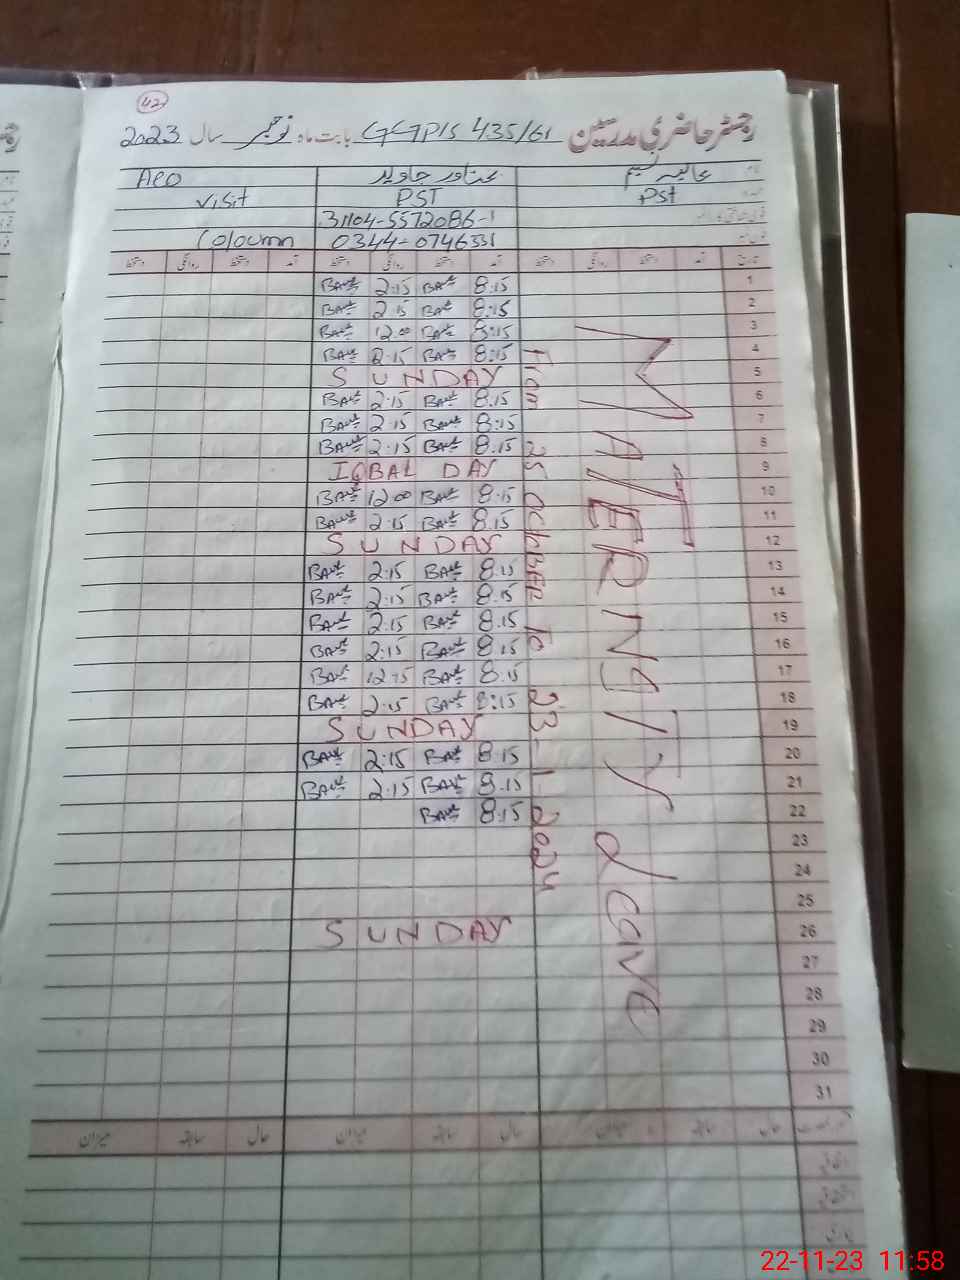 42
رجسٹر حاضری مدرسین GGPS 435/61 بابت ماہ نومبر سال 2023
عالیہ نسیم جاوید AEO
PST PST visit
31104-5572086-1
0344-0746331 Coloumn
تاریخ آمد دستخط روانگی دستخط آمد دستخط روانگی دستخط آمد دستخط روانگی دستخط
1 8:15 2:15
2 8:15 2:15
3 8:15 12:00
4 8:15 2:15
5 SUNDAY
6 8:15 2:15
7 8:15 2:15
8 8:15 2:15
9 IQBAL DAY
10 8:15 12:00
11 8:15 2:15
12 SUNDAY
13 8:15 2:15
14 8:15 2:15
15 8:15 2:15
16 8:15 2:15
17 8:15
18 8:15 2:15
19 SUNDAY
20 8:15 2:15
21 8:15 2:15
22 8:15
23
24
25
26 SUNDAY
27
28
29
30
31
MATERNITY leave
From 25 OctoBER To 23-1-2024
حال سابقہ میزان حال سابقہ میزان حال سابقہ میزان
اتفاقی
22-11-23 11:58